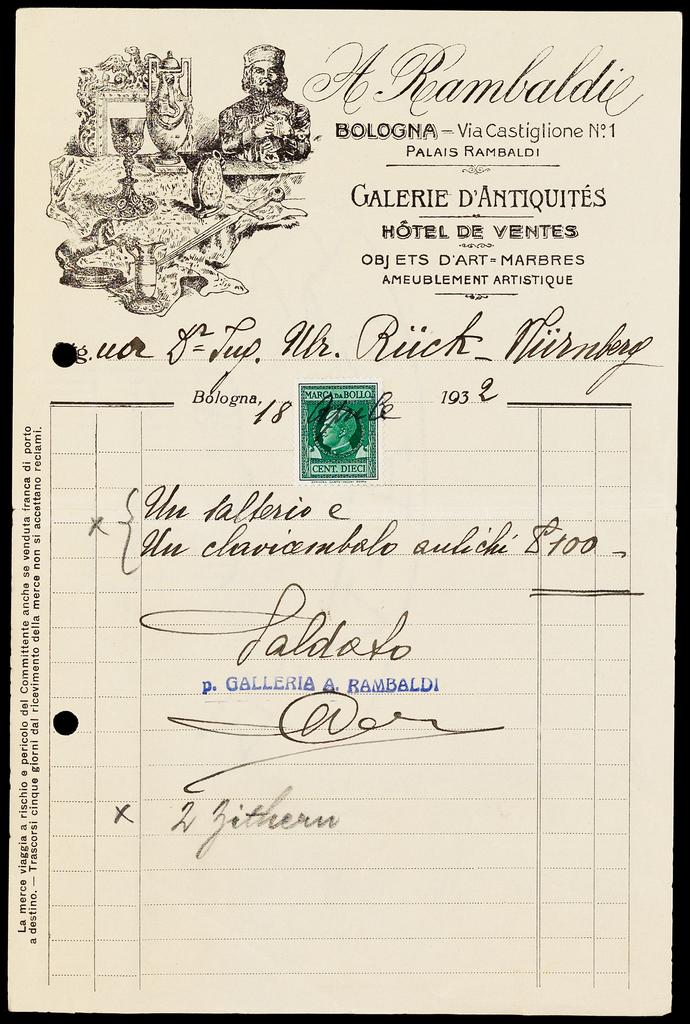 A. Rambaldi
BOLOGNA – Via Castiglione Nº. 1
PALAIS RAMBALDI
GALERIE D'ANTIQUITÉS
HÔTEL DE VENTES
OBJETS D'ART = MARBRES
AMEUBLEMENT ARTISTIQUE
Sig.nor Dr. Ing. Ulr. Rück – Nürnberg
Bologna, 18 Aprile 1932
MARCA DA BOLLO
CENT. DIECI
x { Un salterio e
Un clavicembalo antichi £ 100 –
Saldato
p. GALLERIA A. RAMBALDI
x 2 Zithern
La merce viaggia a rischio e pericolo del Committente anche se venduta franca di porto
a destino. — Trascorsi cinque giorni dal ricevimento della merce non si accettano reclami.